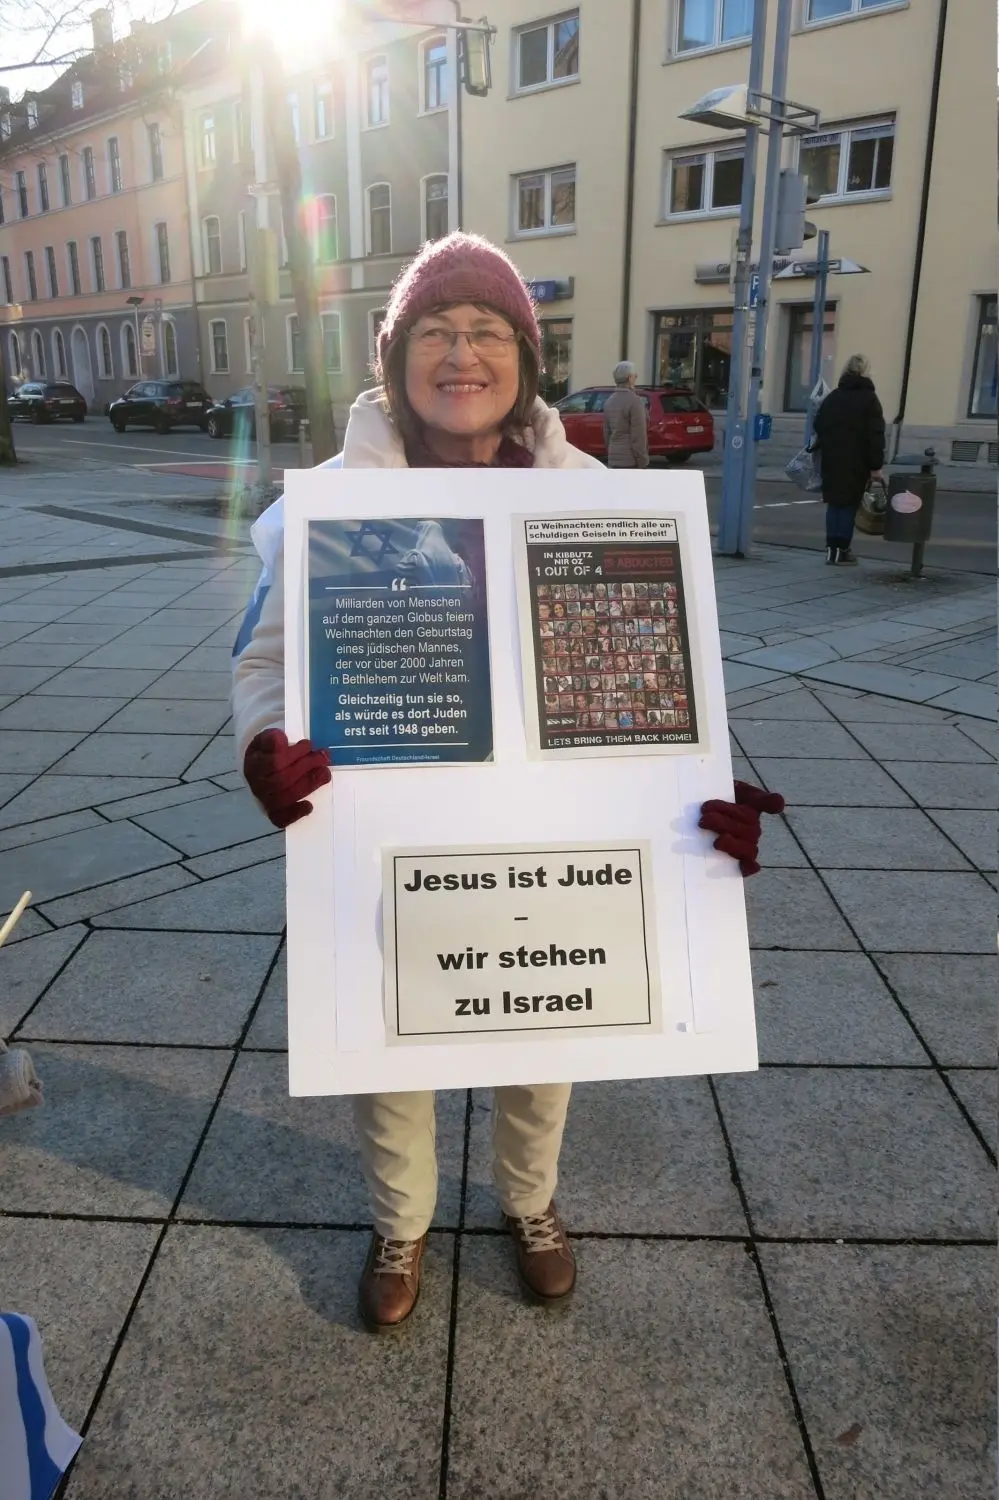 “
Milliarden von Menschen
auf dem ganzen Globus feiern
Weihnachten den Geburtstag
eines jüdischen Mannes,
der vor über 2000 Jahren
in Bethlehem zur Welt kam.
Gleichzeitig tun sie so,
als würde es dort Juden
erst seit 1948 geben.
Freundschaft Deutschland-Israel
zu Weihnachten: endlich alle un-
schuldigen Geiseln in Freiheit!
IN KIBBUTZ
NIR OZ
1 OUT OF 4
IS ABDUCTED
LETS BRING THEM BACK HOME!
Jesus ist Jude
–
wir stehen
zu Israel